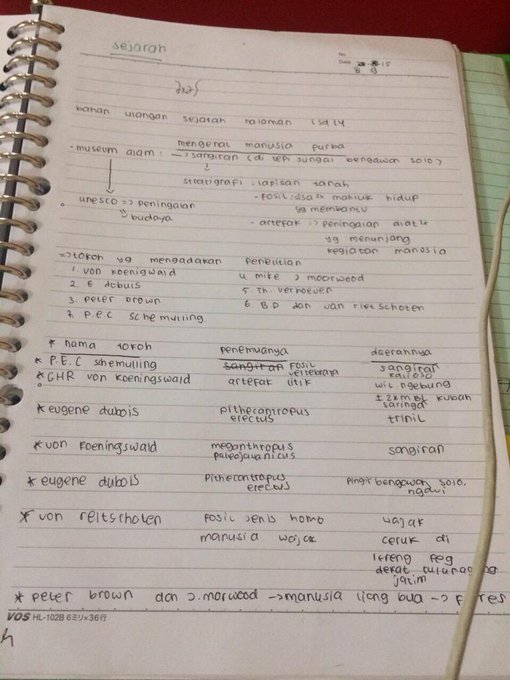 sejarah
No
Date 15
8 9
bahan ulangan sejarah halaman 1 sd 14
mengenal manusia purba
- museum alam: -> sangiran (di tepi sungai bengawan solo)
stratigrafi: lapisan tanah
- fosil: sisa² makluk hidup
unesco => peningalan yg membantu
budaya
- artefak => peningalan alat²
yg menunjang
kegiatan manusia
=> tokoh yg mengadakan penelitian
1. von koenigwald 4. mike J moorwood
2. E dobuis 5. Th. verhoeven
3. peter brown 6. B D dan van rietschoten
7. P.E.C schemulling.
* nama tokoh penemuanya daerahnya
* P.E.C schemulling sangiran fosil sangiran
vertebrata kalioso
* GHR von koeningswald artefak litik wil ngebung
± 2km BL kubah
* eugene dubois pithecantropus trinil
erectus
* von koeningswald meganthropus sangiran
paleojavanicus
* eugene dubois pithecantropus pingir bengawan solo,
erectus ngawi
* von reitschoten fosil jenis homo wajak
manusia wajak ceruk di
lereng peg
dekat
jatim
* peter brown dan J. morwood -> manusia liang bua -> flores
VOS HL-102B 6ミリ×36行